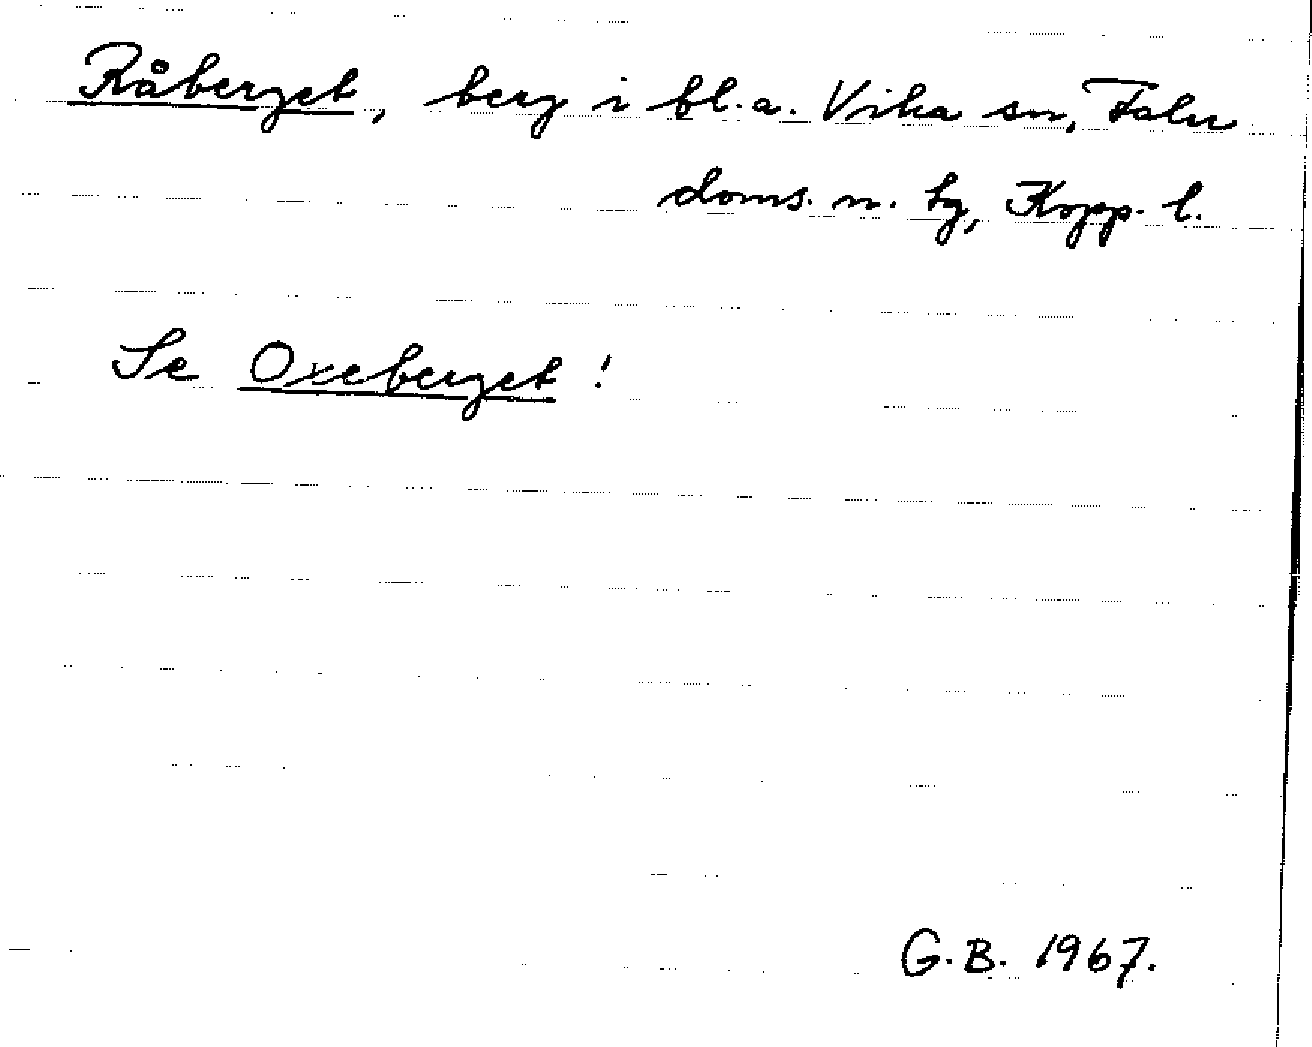 Råberget, berg i bl.a. Vika sn, Falu
doms. n. tg, Kopp. l.
Se Oxeberget!
G.B. 1967.